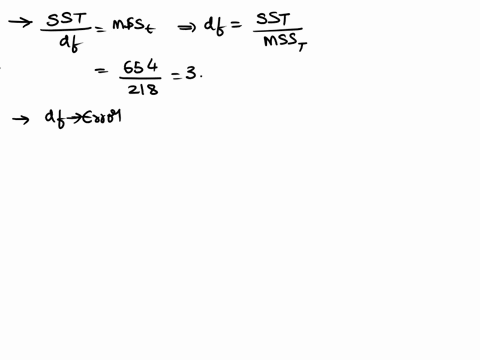 → SST/df = MSSt ⇒ df = SST/MSST
= 654/218 = 3.
→ df → Error